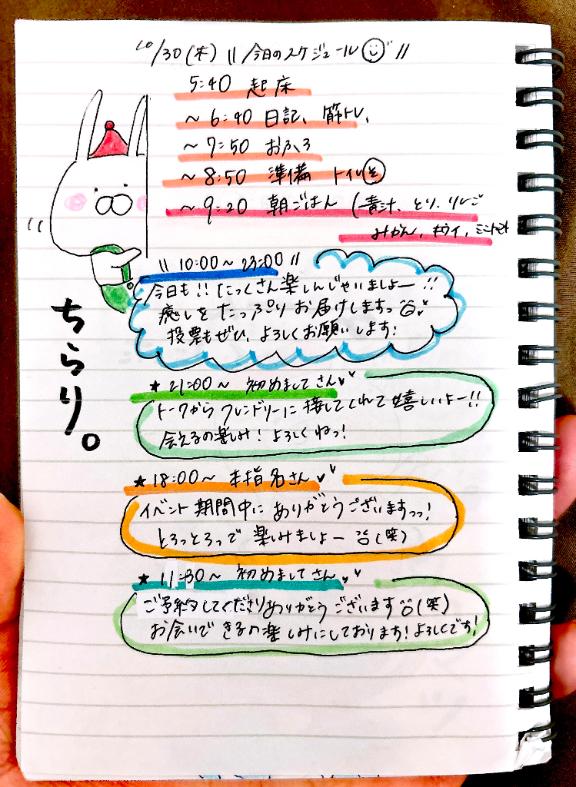 10/30(木) \\ 今日のスケジュール //
5:40 起床
~6:40 日記、筋トレ、
~7:50 おふろ
~8:50 準備 トイレ
~9:20 朝ごはん (青汁、とり、りんご
みかん、キウイ、ミニトマト
\\ 10:00~23:00 //
今日も!! たっくさん楽しんじゃいましよー!!
癒しをたっぷりお届けしますっ
投票もぜひ、よろしくお願いします!
ちらり。
★21:00~ 初めましてさん
トークからフレンドリーに接してくれて嬉しいよー!!
会えるの楽しみ! よろしくねっ!
★18:00~ 本指名さん
イベント期間中にありがとうございますっっ!
とろっとろっで 楽しみましよー (笑)
★11:30~ 初めましてさん
ご予約してくださりありがとうございます (笑)
お会いできるの楽しみにしております! よろしくです!